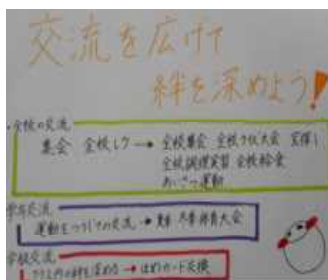 交流を広げて
絆を深めよう!
・全校の交流
集会 全校レク → 全校集会 全校クイズ大会 宝探し
全校調理実習 全校給食
あいさつ運動
学年交流
運動をつうじての交流 → 夏 冬季体育大会
学級交流
クラス内の絆を深める → ほめカード交換